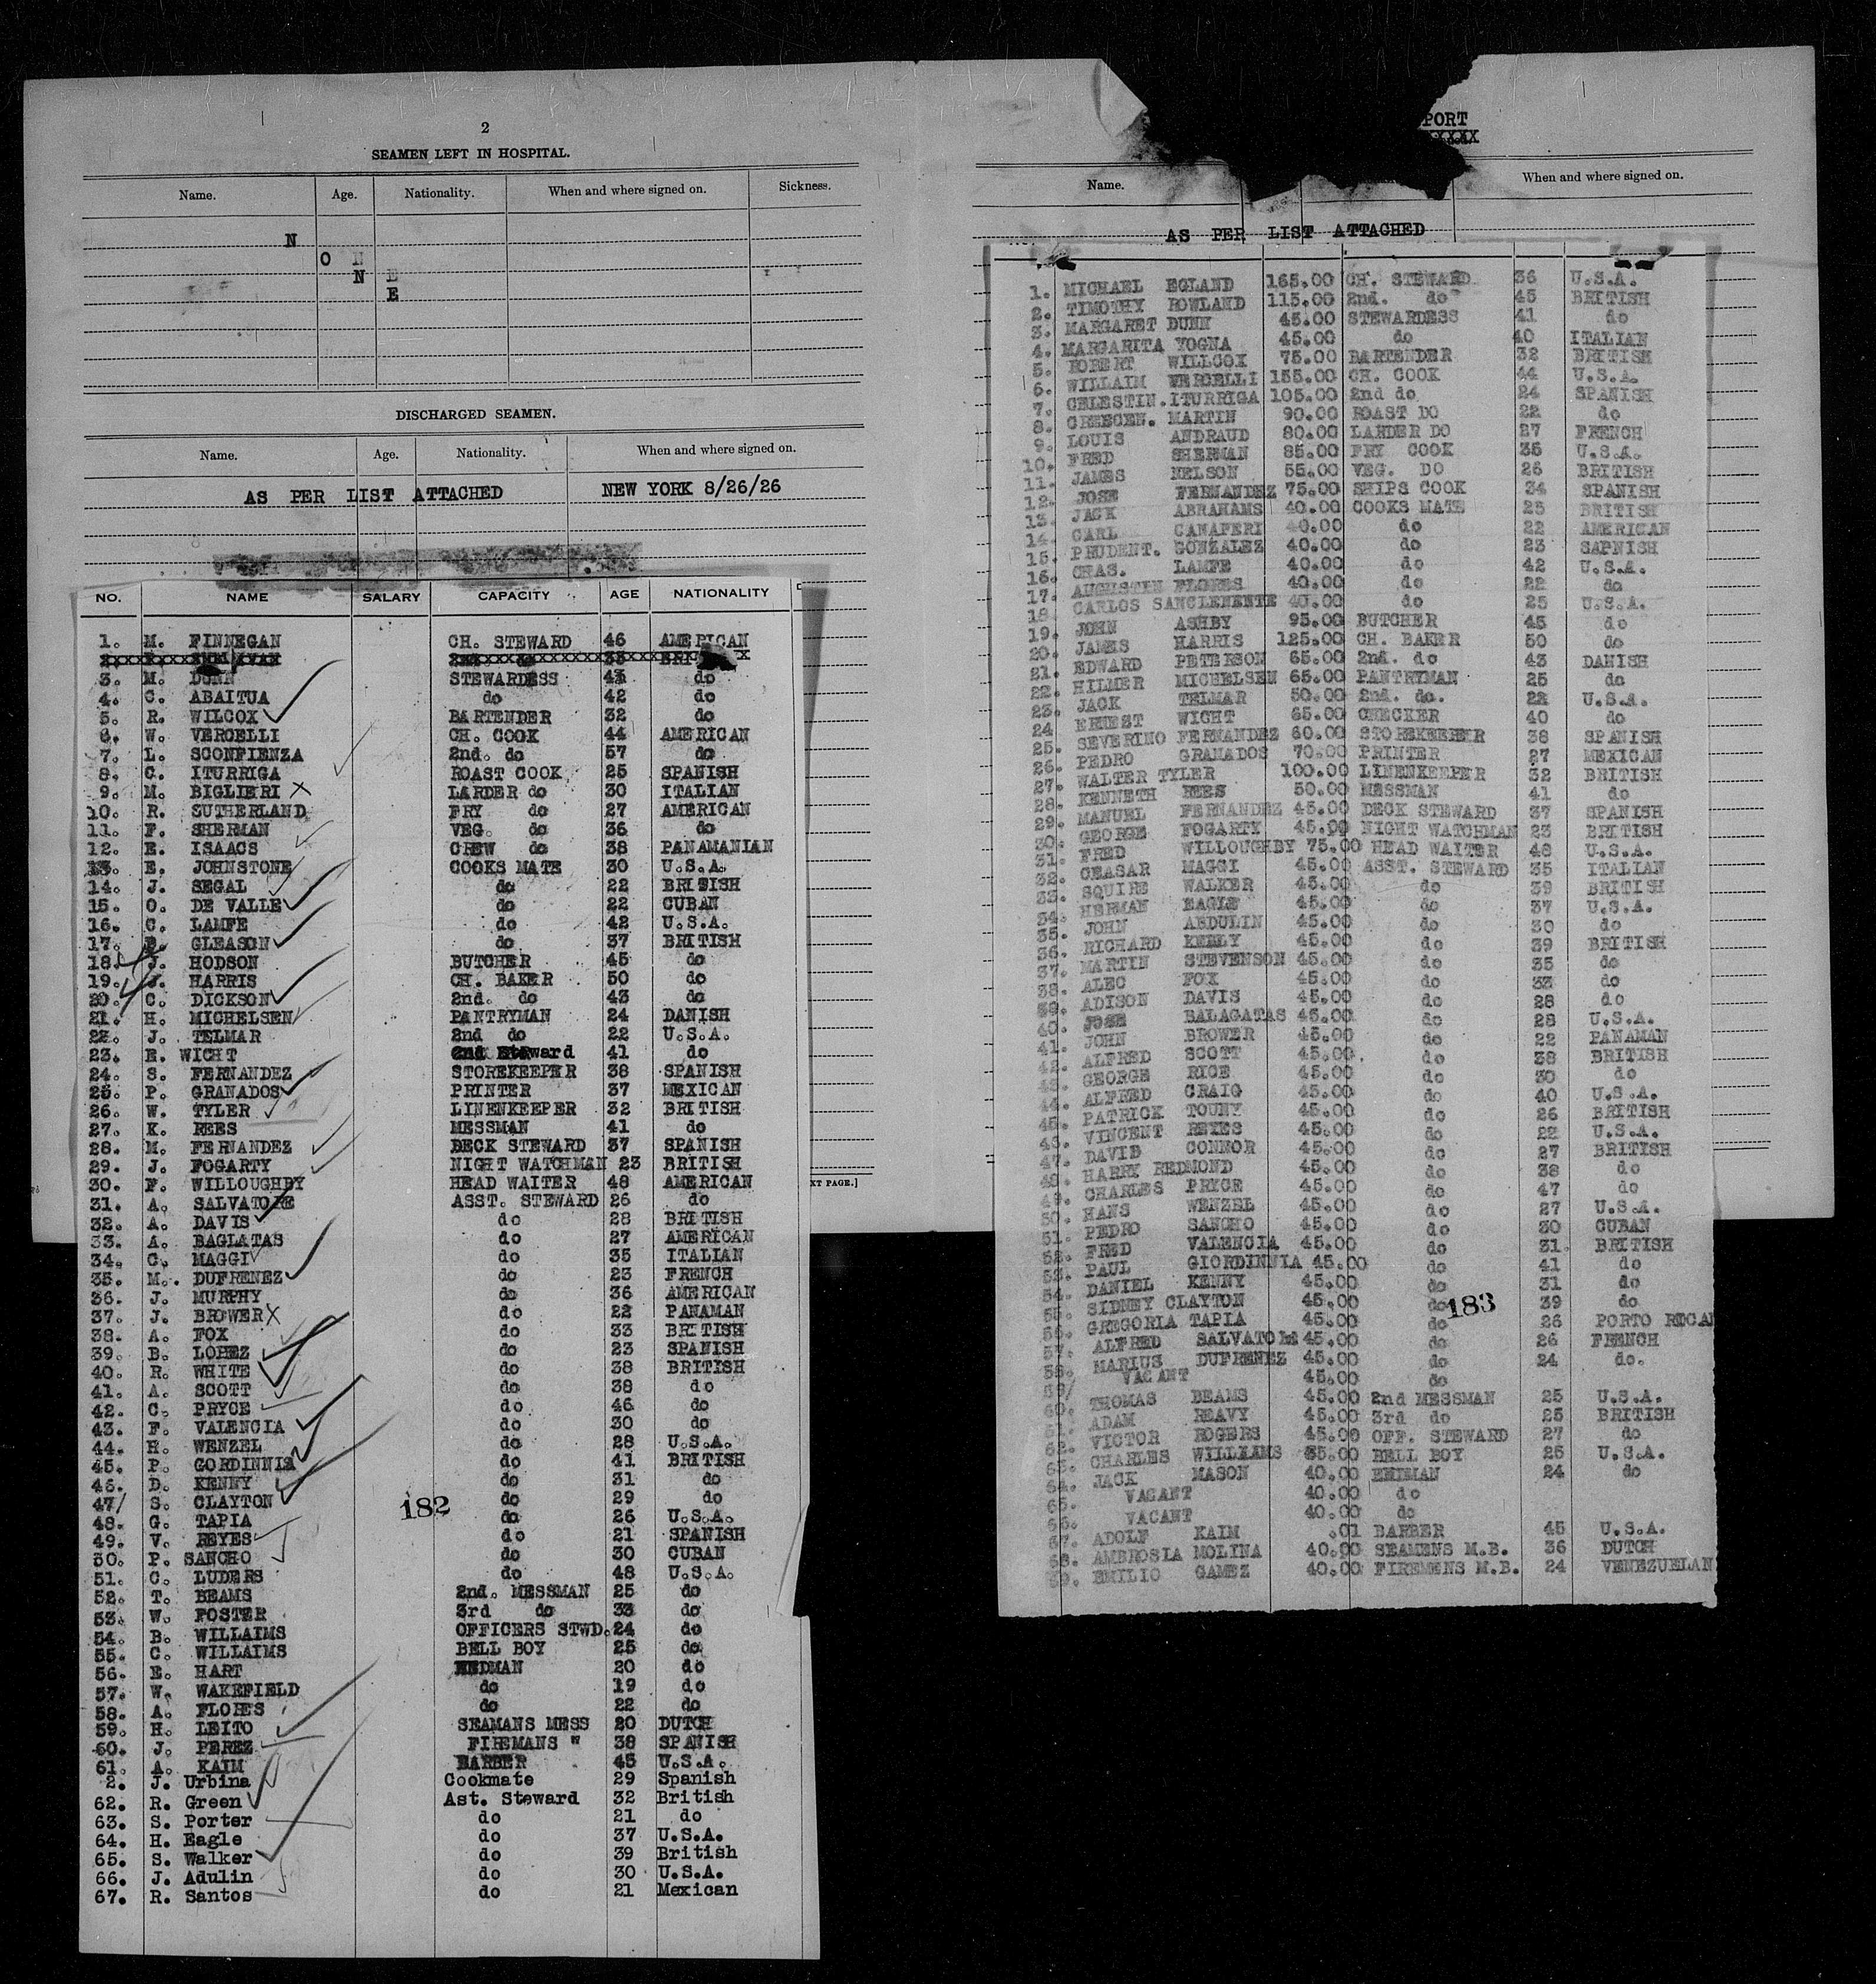 2
SEAMEN LEFT IN HOSPITAL.
Name. Age. Nationality. When and where signed on. Sickness.
N
O N
N E
E
DISCHARGED SEAMEN.
Name. Age. Nationality. When and where signed on.
AS PER LIST ATTACHED NEW YORK 8/26/26
NO. NAME SALARY CAPACITY AGE NATIONALITY
1. M. FINNEGAN CH. STEWARD 46 AMERICAN
3. M. DUNN STEWARDESS 41 do
4. C. ABAITUA do 42 do
5. R. WILCOX BARTENDER 32 do
6. W. VERCELLI CH. COOK 44 AMERICAN
7. L. SCONFIENZA 2nd. do 57 do
8. C. ITURRIGA ROAST COOK 25 SPANISH
9. M. BIGLIERI X LARDER do 30 ITALIAN
10. R. SUTHERLAND FRY do 27 AMERICAN
11. F. SHERMAN VEG. do 36 do
12. E. ISAACS CREW do 38 PANAMANIAN
13. E. JOHNSTONE COOKS MATE 30 U.S.A.
14. J. SEGAL do 22 BRITISH
15. O. DE VALLE do 22 CUBAN
16. C. LAMFE do 42 U.S.A.
17. GLEASON do 37 BRITISH
18. J. HODSON BUTCHER 45 do
19. J. HARRIS CH. BAKER 50 do
20. C. DICKSON 2nd. do 43 do
21. H. MICHELSEN PANTRYMAN 24 DANISH
22. J. TELMAR 2nd do 22 U.S.A.
23. E. WICHT 2nd Steward 41 do
24. S. FERNANDEZ STOREKEEPER 38 SPANISH
25. P. GRANADOS PRINTER 37 MEXICAN
26. W. TYLER LINENKEEPER 32 BRITISH
27. K. REES MESSMAN 41 do
28. M. FERNANDEZ DECK STEWARD 37 SPANISH
29. J. FOGARTY NIGHT WATCHMAN 23 BRITISH
30. F. WILLOUGHBY HEAD WAITER 48 AMERICAN
31. A. SALVATORE ASST. STEWARD 26 do
32. A. DAVIS do 28 BRITISH
33. A. BAGLATAS do 27 AMERICAN
34. C. MAGGI do 35 ITALIAN
35. M. DUFRENEZ do 23 FRENCH
36. J. MURPHY do 36 AMERICAN
37. J. BROWER X do 22 PANAMAN
38. A. FOX do 33 BRITISH
39. B. LOPEZ do 23 SPANISH
40. R. WHITE do 38 BRITISH
41. A. SCOTT do 38 do
42. C. PRYCE do 46 do
43. F. VALENCIA do 30 do
44. H. WENZEL do 28 U.S.A.
45. P. GORDINNIA do 41 BRITISH
46. D. KENNY do 31 do
47/ S. CLAYTON do 29 do
182
48. G. TAPIA do 26 U.S.A.
49. V. REYES do 21 SPANISH
50. P. SANCHO do 30 CUBAN
51. C. LUDERS do 48 U.S.A.
52. T. BEAMS 2nd. MESSMAN 25 do
53. W. FOSTER 3rd do 33 do
54. B. WILLAIMS OFFICERS STWD. 24 do
55. C. WILLAIMS BELL BOY 25 do
56. E. HART 20 do
57. W. WAKEFIELD do 19 do
58. A. FLORES do 22 do
59. H. LEITO SEAMANS MESS 20 DUTCH
60. J. PEREZ FIREMANS " 38 SPANISH
61. A. KAIM BARBER 45 U.S.A.
2. J. Urbina Cookmate 29 Spanish
62. R. Green Ast. Steward 32 British
63. S. Porter do 21 do
64. H. Eagle do 37 U.S.A.
65. S. Walker do 39 British
66. J. Adulin do 30 U.S.A.
67. R. Santos do 21 Mexican
XT PAGE.]
PORT
Name. When and where signed on.
AS PER LIST ATTACHED
1. MICHAEL EGLAND 165.00 CH. STEWARD 36 U.S.A.
2. TIMOTHY ROWLAND 115.00 2nd. do 45 BRITISH
3. MARGARET DUNN 45.00 STEWARDESS 41 do
4. MARGARITA YOGNA 45.00 do 40 ITALIAN
5. ROBERT WILLCOX 75.00 BARTENDER 32 BRITISH
6. WILLAIM VERCELLI 155.00 CH. COOK 44 U.S.A.
7. CELESTIN. ITURRIGA 105.00 2nd do 24 SPANISH
8. CRESCEN. MARTIN 90.00 ROAST DO 22 do
9. LOUIS ANDRAUD 80.00 LARDER DO 27 FRENCH
10. FRED SHERMAN 85.00 FRY COOK 35 U.S.A.
11. JAMES NELSON 55.00 VEG. DO 26 BRITISH
12. JOSE FERNANDEZ 75.00 SHIPS COOK 34 SPANISH
13. JACK ABRAHAMS 40.00 COOKS MATE 23 BRITISH
14. CARL CANAPERI 40.00 do 22 AMERICAN
15. PRUDENT. GONZALEZ 40.00 do 23 SAPNISH
16. CHAS. LAMFE 40.00 do 42 U.S.A.
17. AUGUSTIN FLORES 40.00 do 22 do
18. CARLOS SANCLEMENTE 40.00 do 25 U.S.A.
19. JOHN ASHBY 95.00 BUTCHER 45 do
20. JAMES HARRIS 125.00 CH. BAKER 50 do
21. EDWARD PETERSON 65.00 2nd. do 43 DANISH
22. HILMER MICHELSEN 65.00 PANTRYMAN 25 do
23. JACK TELMAR 50.00 2nd. do. 22 U.S.A.
24 ERNEST WIGHT 65.00 CHECKER 40 do
25. SEVERINO FERNANDEZ 60.00 STOREKEEPER 38 SPANISH
26. PEDRO GRANADOS 70.00 PRINTER 27 MEXICAN
27. WALTER TYLER 100.00 LINENKEEPER 32 BRITISH
28. KENNETH REES 50.00 MESSMAN 41 do
29. MANUEL FERNANDEZ 45.00 DECK STEWARD 37 SPANISH
30. GEORGE FOGARTY 45.00 NIGHT WATCHMAN 23 BRITISH
31. FRED WILLOUGHBY 75.00 HEAD WAITER 48 U.S.A.
32. CEASAR MAGGI 45.00 ASST. STEWARD 35 ITALIAN
33. SQUIRE WALKER 45.00 do 39 BRITISH
34. HERMAN EAGLE 45.00 do 37 U.S.A.
35. JOHN ABDULIN 45.00 do 30 do
36. RICHARD KEELY 45.00 do 39 BRITISH
37. MARTIN STEVENSON 45.00 do 35 do
38. ALEC FOX 45.00 do 33 do
39. ADISON DAVIS 45.00 do 28 do
40. JOSE BALAGATAS 45.00 do 28 U.S.A.
41. JOHN BROWER 45.00 do 22 PANAMAN
42. ALFRED SCOTT 45.00. do 38 BRITISH
43. GEORGE RICE 45.00 do 30 do
44. ALFRED CRAIG 45.00 do 40 U.S.A.
45. PATRICK TOUNY 45.00 do 26 BRITISH
46. VINCENT REYES 45.00 do 22 U.S.A.
47. DAVID CONNOR 45.00 do 27 BRITISH
48. HARRY REDMOND 45.00 do 38 do
49. CHARLES PRYCE 45.00 do 47 do
50. HANS WENZEL 45.00 do 27 U.S.A.
51. PEDRO SANCHO 45.00 do 30 CUBAN
52. FRED VALENCIA 45.00 do 31. BRITISH
53. PAUL GIORDINNIA 45.00 do 41 do
54. DANIEL KENNY 45.00 do 31 do
55. SIDNEY CLAYTON 45.00 do 39 do
183
56. GREGORIA TAPIA 45.00 do 26 PORTO RICAN
57. ALFRED SALVATORE 45.00 do 26 FRENCH
58. MARIUS DUFRENEZ 45.00 do 24 do.
59/ VACANT 45.00 do
60. THOMAS BEAMS 45.00 2nd MESSMAN 25 U.S.A.
61. ADAM REAVY 45.00 3rd do 25 BRITISH
62. VICTOR ROGERS 45.00 OFF. STEWARD 27 do
63. CHARLES WILLIAMS 35.00 BELL BOY 25 U.S.A.
64. JACK MASON 40.00 24 do
65. VACANT 40.00 do
66. VACANT 40.00 do
67. ADOLF KAIM .01 BARBER 45 U.S.A.
68. AMBROSIA MOLINA 40.00 SEAMENS M.B. 36 DUTCH
69. EMILIO GAMEZ 40.00 FIREMENS M.B. 24 VENEZUELAN